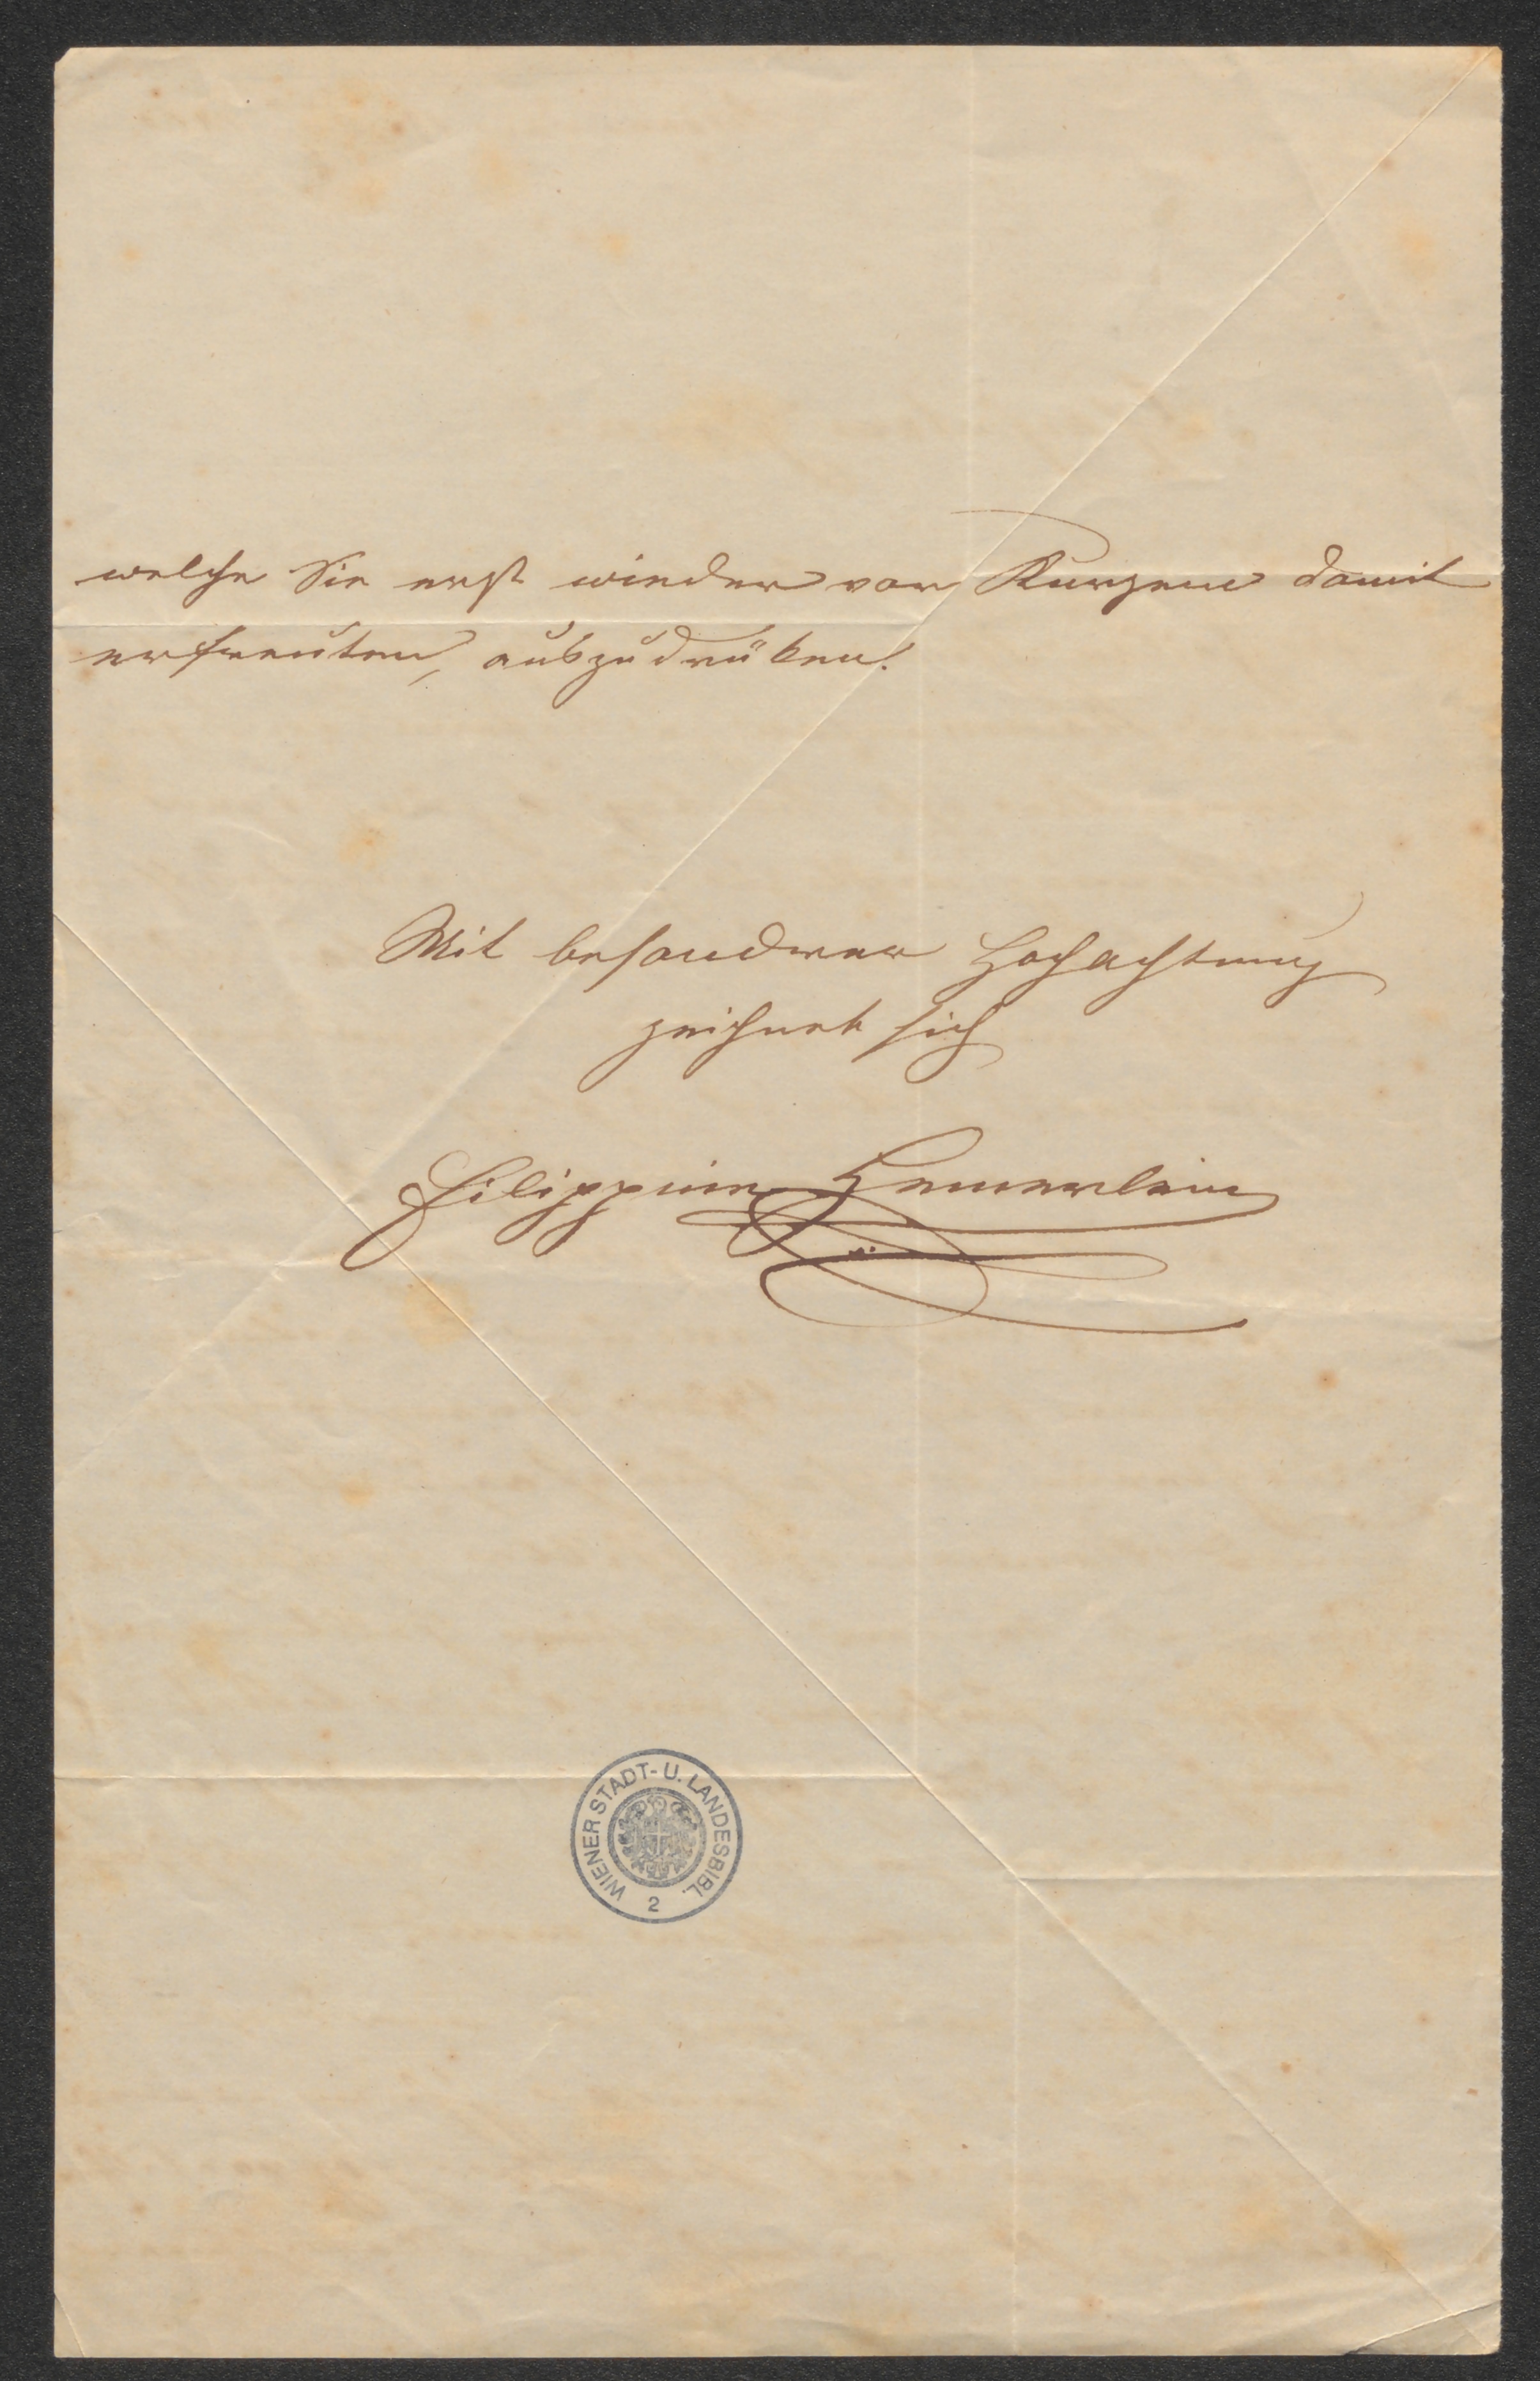 welche Sie erst wieder vor Kurzem damit
erfreuten, auszudrüken!
Mit besondrer Hochachtung
zeichnet sich
Filippine
WIENER STADT- U. LANDESBIBL.
2